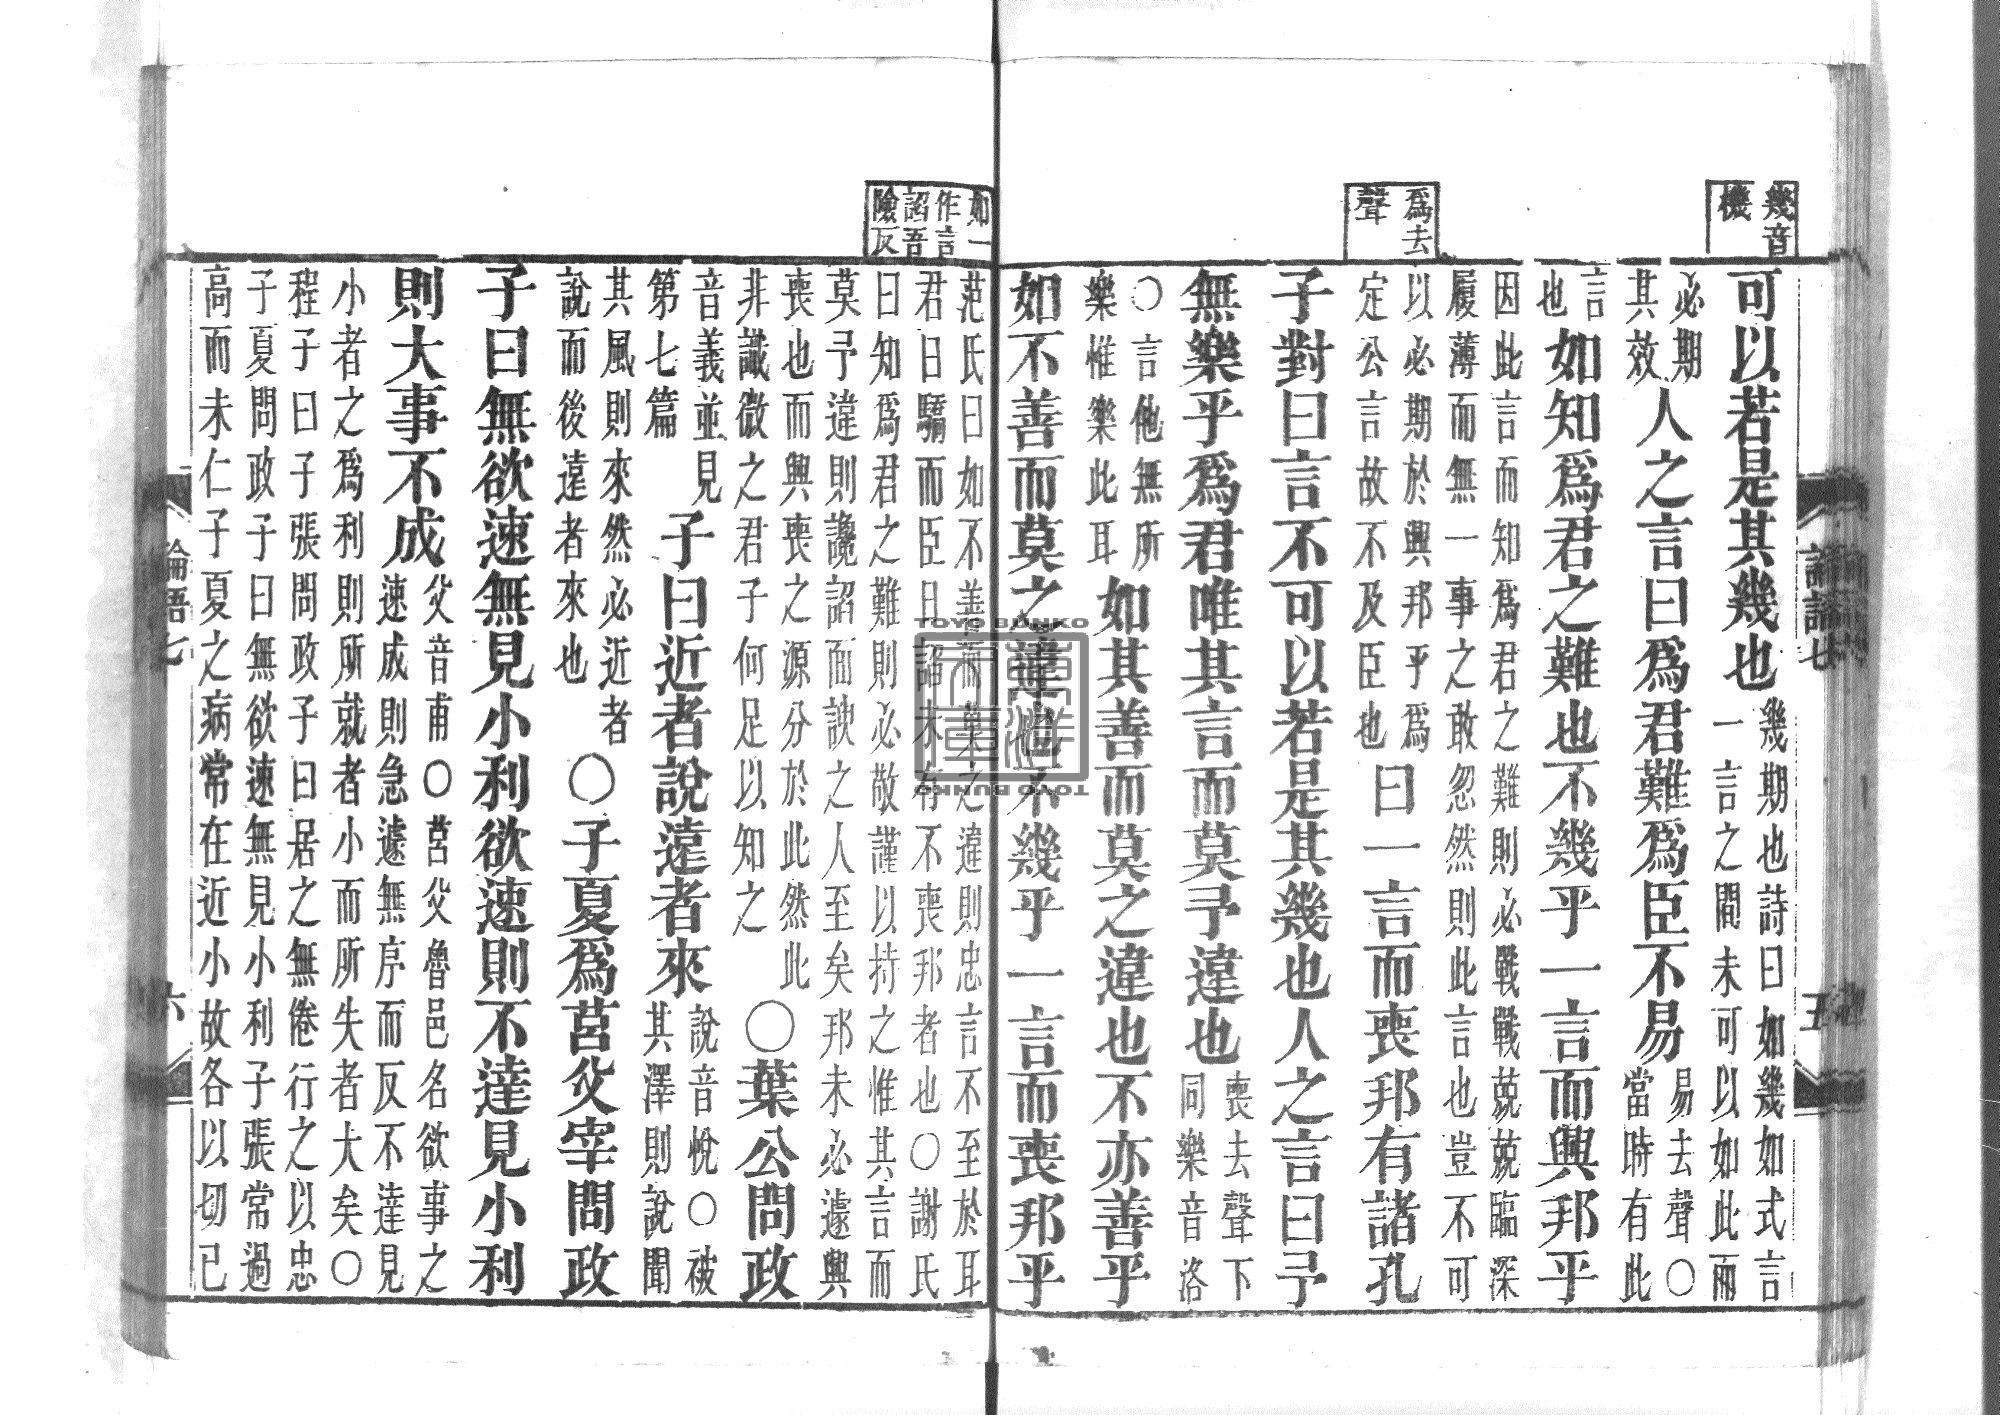 幾音
機
爲去
聲
可以若是其幾也
幾期也詩曰如幾如式言
一言之間未可以如此而
必期
其效
人之言曰爲君難爲臣不易
易去聲○
當時有此
言
也
如知爲君之難也不幾乎一言而興邦乎
因此言而知爲君之難則必戰戰兢兢臨深
履薄而無一事之敢忽然則此言也豈不可
以必期於興邦乎爲
定公言故不及臣也
曰一言而喪邦有諸孔
子對曰言不可以若是其幾也人之言曰予
無樂乎爲君唯其言而莫予違也
喪去聲下
同樂音洛
○言他無所
樂惟樂此耳
如其善而莫之違也不亦善乎
如不善而莫之違也不幾乎一言而喪邦乎
五
如一
作言
諂吾
險反
范氏曰如不善而莫之違則忠言不至於耳
君日驕而臣日諂未有不喪邦者也○謝氏
曰知爲君之難則必敬謹以持之惟其言而
莫予違則讒諂面諛之人至矣邦未必遽興
喪也而興喪之源分於此然此
非識微之君子何足以知之
○葉公問政
音義並見
第七篇
子曰近者說遠者來
說音悅○被
其澤則說聞
其風則來然必近者
說而後遠者來也
○子夏爲莒父宰問政
子曰無欲速無見小利欲速則不達見小利
則大事不成
父音甫○莒父魯邑名欲事之
速成則急遽無序而反不達見
小者之爲利則所就者小而所失者大矣○
程子曰子張問政子曰居之無倦行之以忠
子夏問政子曰無欲速無見小利子張常過
高而未仁子夏之病常在近小故各以切己
論語七
六
TOYO BUNKO
TOYO BUNKO